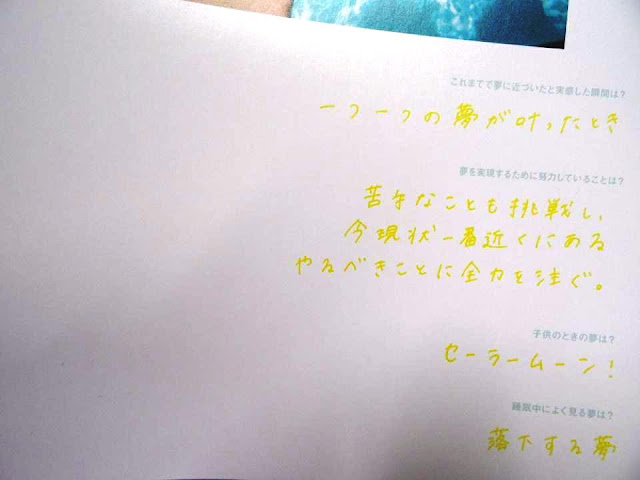 これまでで夢に近づいたと実感した瞬間は?
一つ一つの夢が叶ったとき
夢を実現するために努力していることは?
苦手なことも挑戦し、
今現状一番近くにある
やるべきことに全力を注ぐ。
子供のときの夢は?
セーラームーン!
睡眠中によく見る夢は?
落下する夢